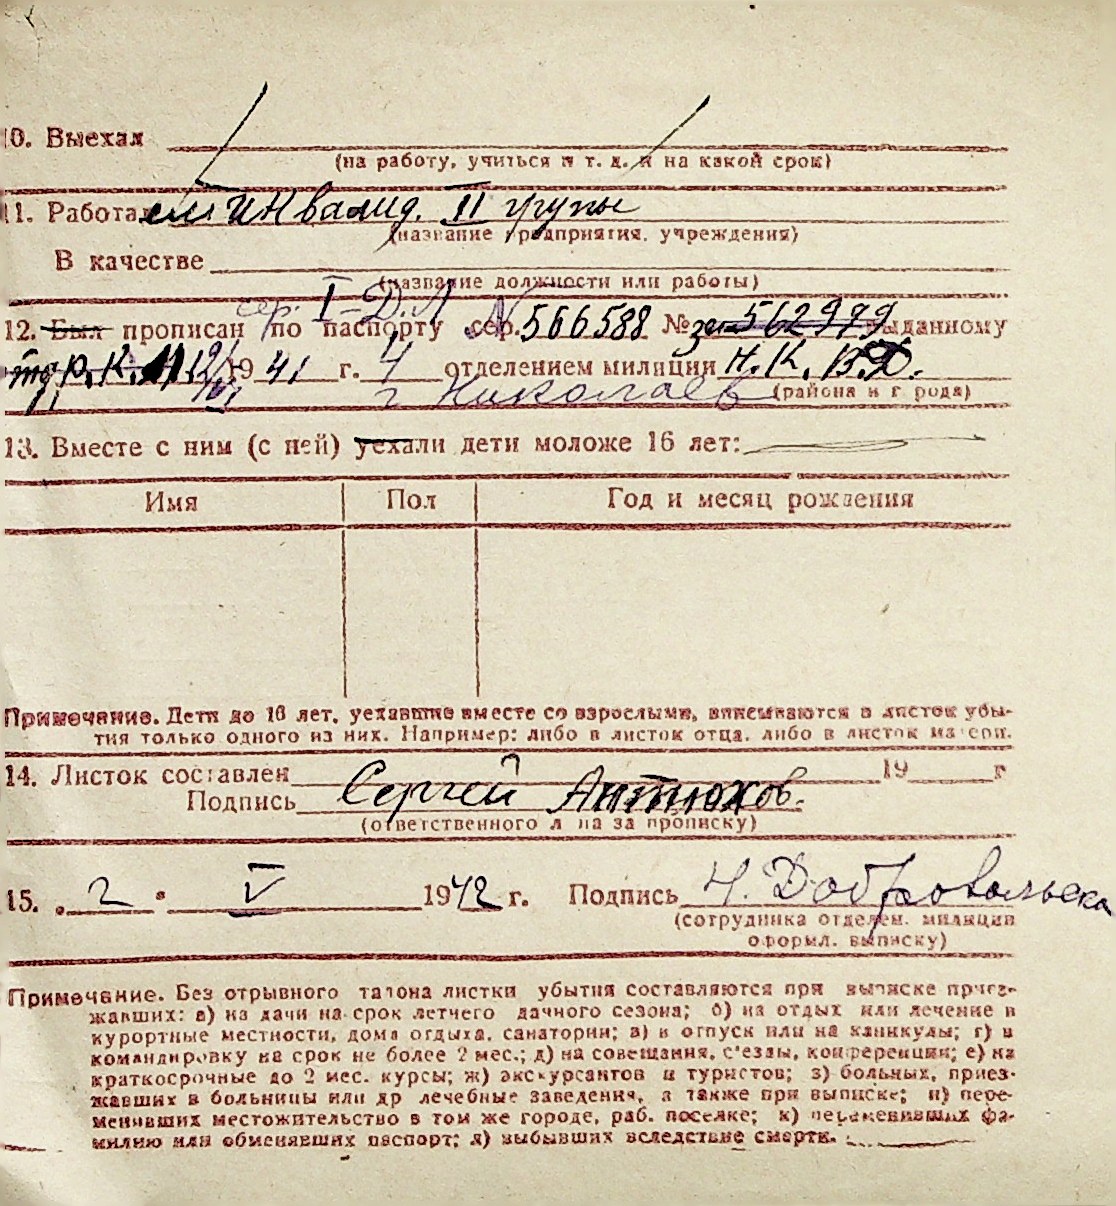 10. Выехал
(на работу, учиться и т. д. и на какой срок)
11. Работал инвалид. II групы
(название предприятия, учреждения)
В качестве
(название должности или работы)
сер. I-ДЛ N
12. Был прописан по паспорту сер. 566588 № 562979 выданному
1941 г. 4 отделением милиции Н. К. В.Д.
г Николаев (района и города)
13. Вместе с ним (с ней) уехали дети моложе 16 лет:
Имя Пол Год и месяц рождения
Примечание. Дети до 16 лет, уехавшие вместе со взрослыми, вписываются в листок убы-
тия только одного из них. Например: либо в листок отца, либо в листок матери.
14. Листок составлен 19 г
Подпись Сергей Антюхов.
(ответственного лица за прописку)
15. „2" V 1942 г. Подпись Н. Добровольска
(сотрудника отделен. милиции
оформл. выписку)
Примечание. Без отрывного талона листки убытия составляются при выписке приез-
жавших: а) на дачи на срок летнего дачного сезона; б) на отдых или лечение в
курортные местности, дома отдыха, санатории; в) в отпуск или на каникулы; г) в
командировку на срок не более 2 мес.; д) на совещания, с'езды, конференции; е) на
краткосрочные до 2 мес. курсы; ж) экскурсантов и туристов; з) больных, приез-
жавших в больницы или др лечебные заведения, а также при выписке; и) пере-
менивших местожительство в том же городе, раб. поселке; к) переменивших фа-
милию или обменявших паспорт; л) выбывших вследствие смерти.